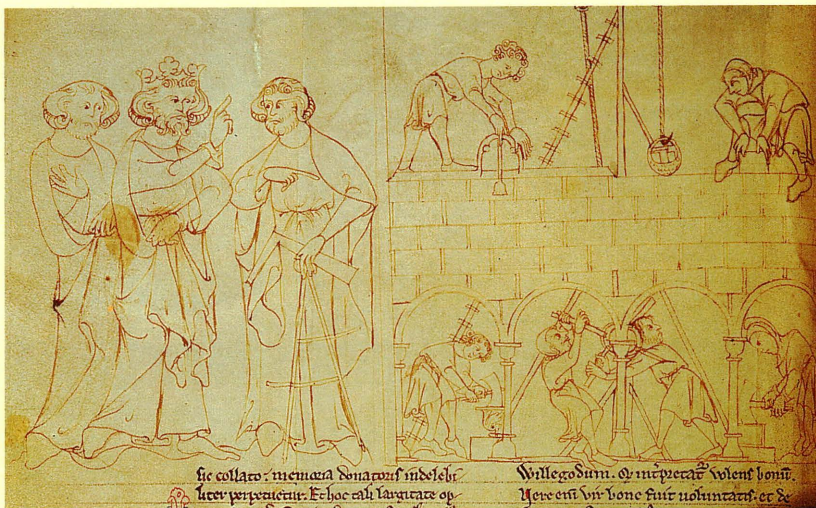 sic collato: memoria donatoris indelebi
liter perpetuetur. Et hoc tali largitate op
Willegodum. Qd int̉pretat᷑ volens bonū.
Vere eni vir bone fuit uoluntatis. et de